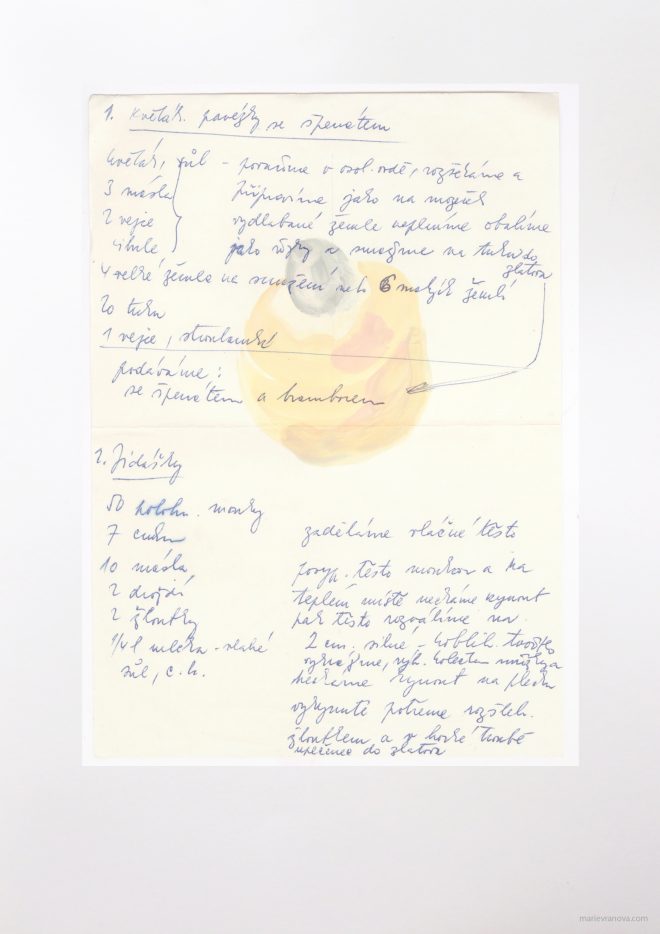 1. Květák. pavézky se špenátem
květák, sůl - povaříme v osol. vodě, rozsekáme a
3 másla připravíme jako na mozeček
2 vejce vydlabané žemle naplníme obalíme
cibule jako řízky a smažíme na tuku do
zlatova
4 velké žemle na smažení neb 6 malých žemlí
20 tuku
1 vejce, strouhanka
podáváme:
se špenátem a bramborem
2. Jidášky
50 polohr. mouky
7 cukru zaděláme vláčné těsto
10 másla posyp. těsto moukou a na
2 droždí teplém místě necháme kynout
2 žloutky pak těsto rozválíme na
1/4 l mléka - vlahé 2 cm. silné -
sůl, c.k.
necháme kynout na plechu
vykynuté potřeme rozšleh.
žloutkem a v horké troubě
upečeme do zlatova
marievranova.com